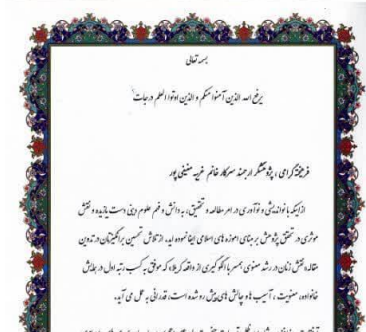 بسمه تعالی
یرفع الله الذین آمنوا منکم و الذین اوتوا العلم درجات
فرهیخته گرامی ، پژوهشگر ارجمند سرکار خانم
از اینکه با نواندیشی و نوآوری در امر مطالعه و تحقیق، به دانش و فهم علوم دینی دست یازیده و نقش
موثری در تحقق پژوهش بر مبنای آموزه های اسلامی ایفا نموده اید. از تلاش تحسین برانگیزتان در تدوین
مقاله نقش زنان در رشد معنوی همسر با الگوگیری از واقعه کربلا، که موفق به کسب رتبه اول در همایش
خانواده، معنویت ، آسیب ها و چالش های پیش رو شده است، قدردانی به عمل می آید.